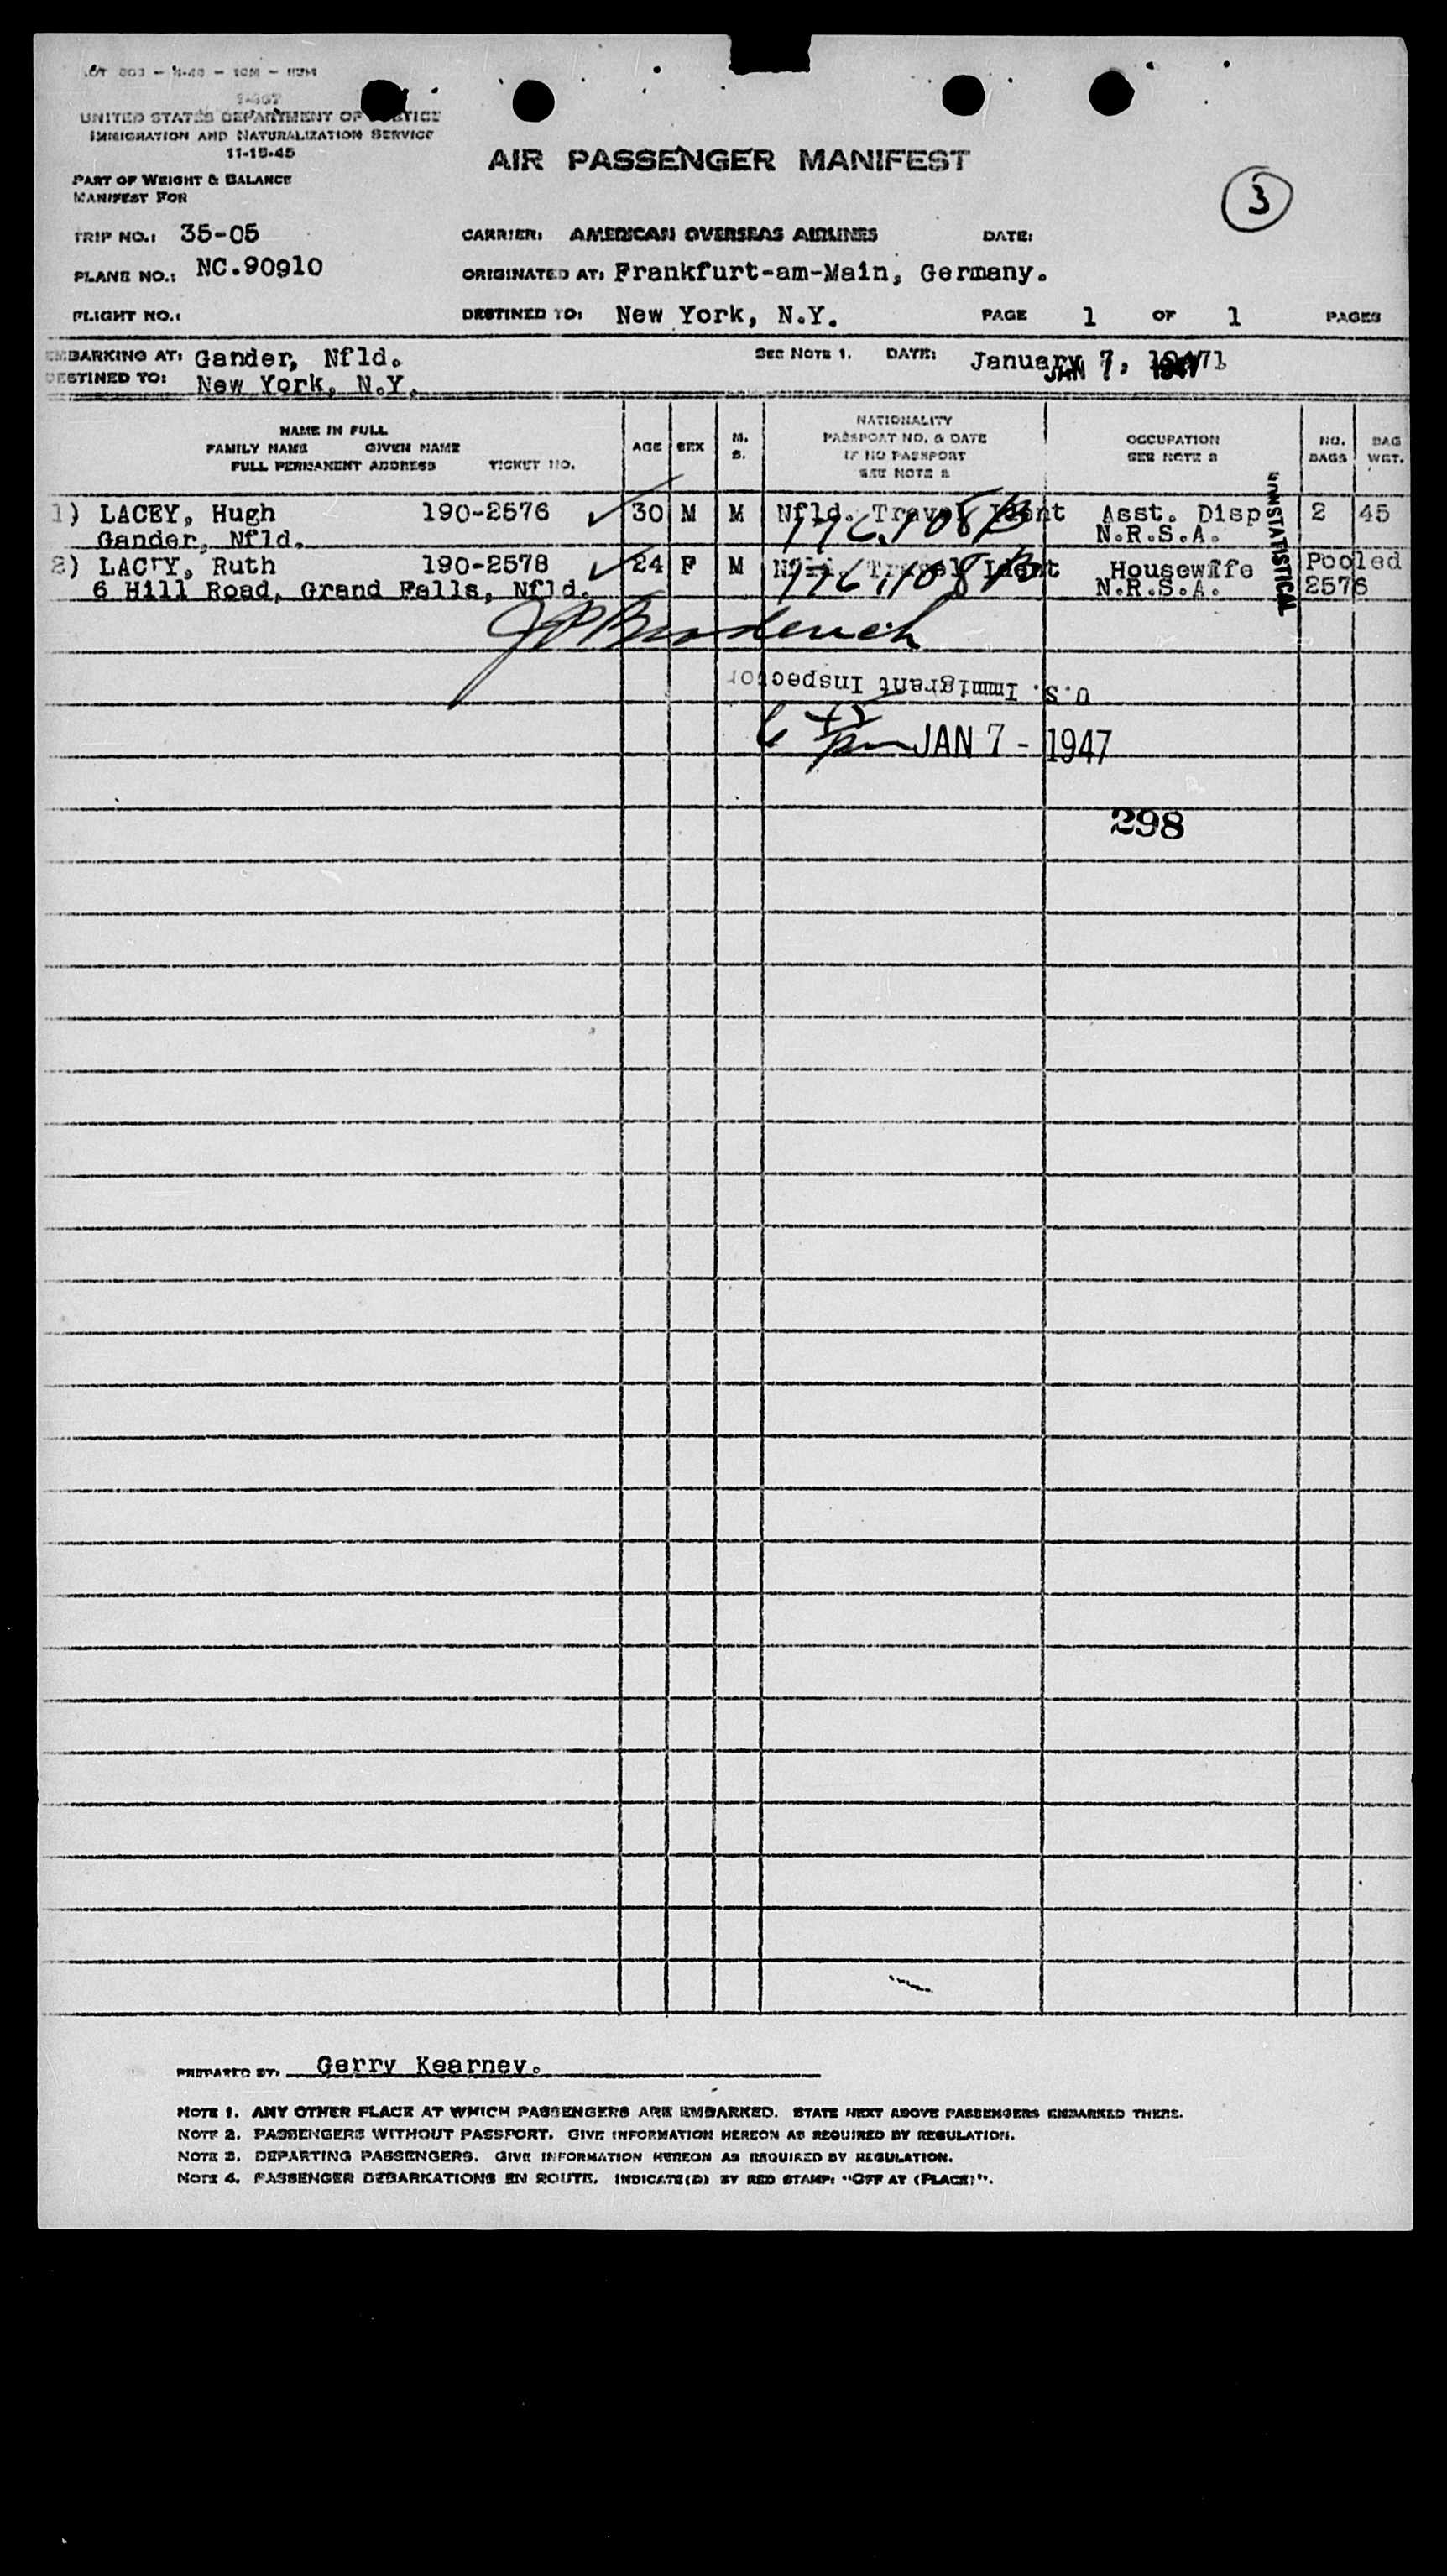 UNITED STATES DEPARTMENT OF JUSTICE
IMMIGRATION AND NATURALIZATION SERVICE
11-15-45
AIR PASSENGER MANIFEST
3
PART OF WEIGHT & BALANCE
MANIFEST FOR
TRIP NO.: 35-05 CARRIER: AMERICAN OVERSEAS AIRLINES DATE:
PLANE NO.: NC.90910 ORIGINATED AT: Frankfurt-am-Main, Germany.
FLIGHT NO.: DESTINED TO: New York, N.Y. PAGE 1 OF 1 PAGES
EMBARKING AT: Gander, Nfld. SEE NOTE 1. DATE: January 7,
JAN 7, 1947
DESTINED TO: New York, N.Y.
NAME IN FULL
FAMILY NAME GIVEN NAME
FULL PERMANENT ADDRESS TICKET NO.
AGE SEX
M.
S.
NATIONALITY
PASSPORT NO. & DATE
IF NO PASSPORT
SEE NOTE 2
OCCUPATION
SEE NOTE 3
NO.
BAGS
BAG
WGT.
1) LACEY, Hugh 190-2576 30 M M Nfld. Travel Ident Asst. Disp 2 45
Gander, Nfld. N.R.S.A.
2) LACEY, Ruth 190-2578 24 F M Nfld. Travel Ident Housewife Pooled
6 Hill Road, Grand Falls, Nfld. N.R.S.A. 2576
NONSTATISTICAL
U.S. Immigrant Inspector
JAN 7 - 1947
298
PREPARED BY: Gerry Kearney.
NOTE 1. ANY OTHER PLACE AT WHICH PASSENGERS ARE EMBARKED. STATE NEXT ABOVE PASSENGERS EMBARKED THERE.
NOTE 2. PASSENGERS WITHOUT PASSPORT. GIVE INFORMATION HEREON AS REQUIRED BY REGULATION.
NOTE 3. DEPARTING PASSENGERS. GIVE INFORMATION HEREON AS REQUIRED BY REGULATION.
NOTE 4. PASSENGER DEBARKATIONS EN ROUTE. INDICATE(D) BY RED STAMP: "OFF AT (PLACE)".